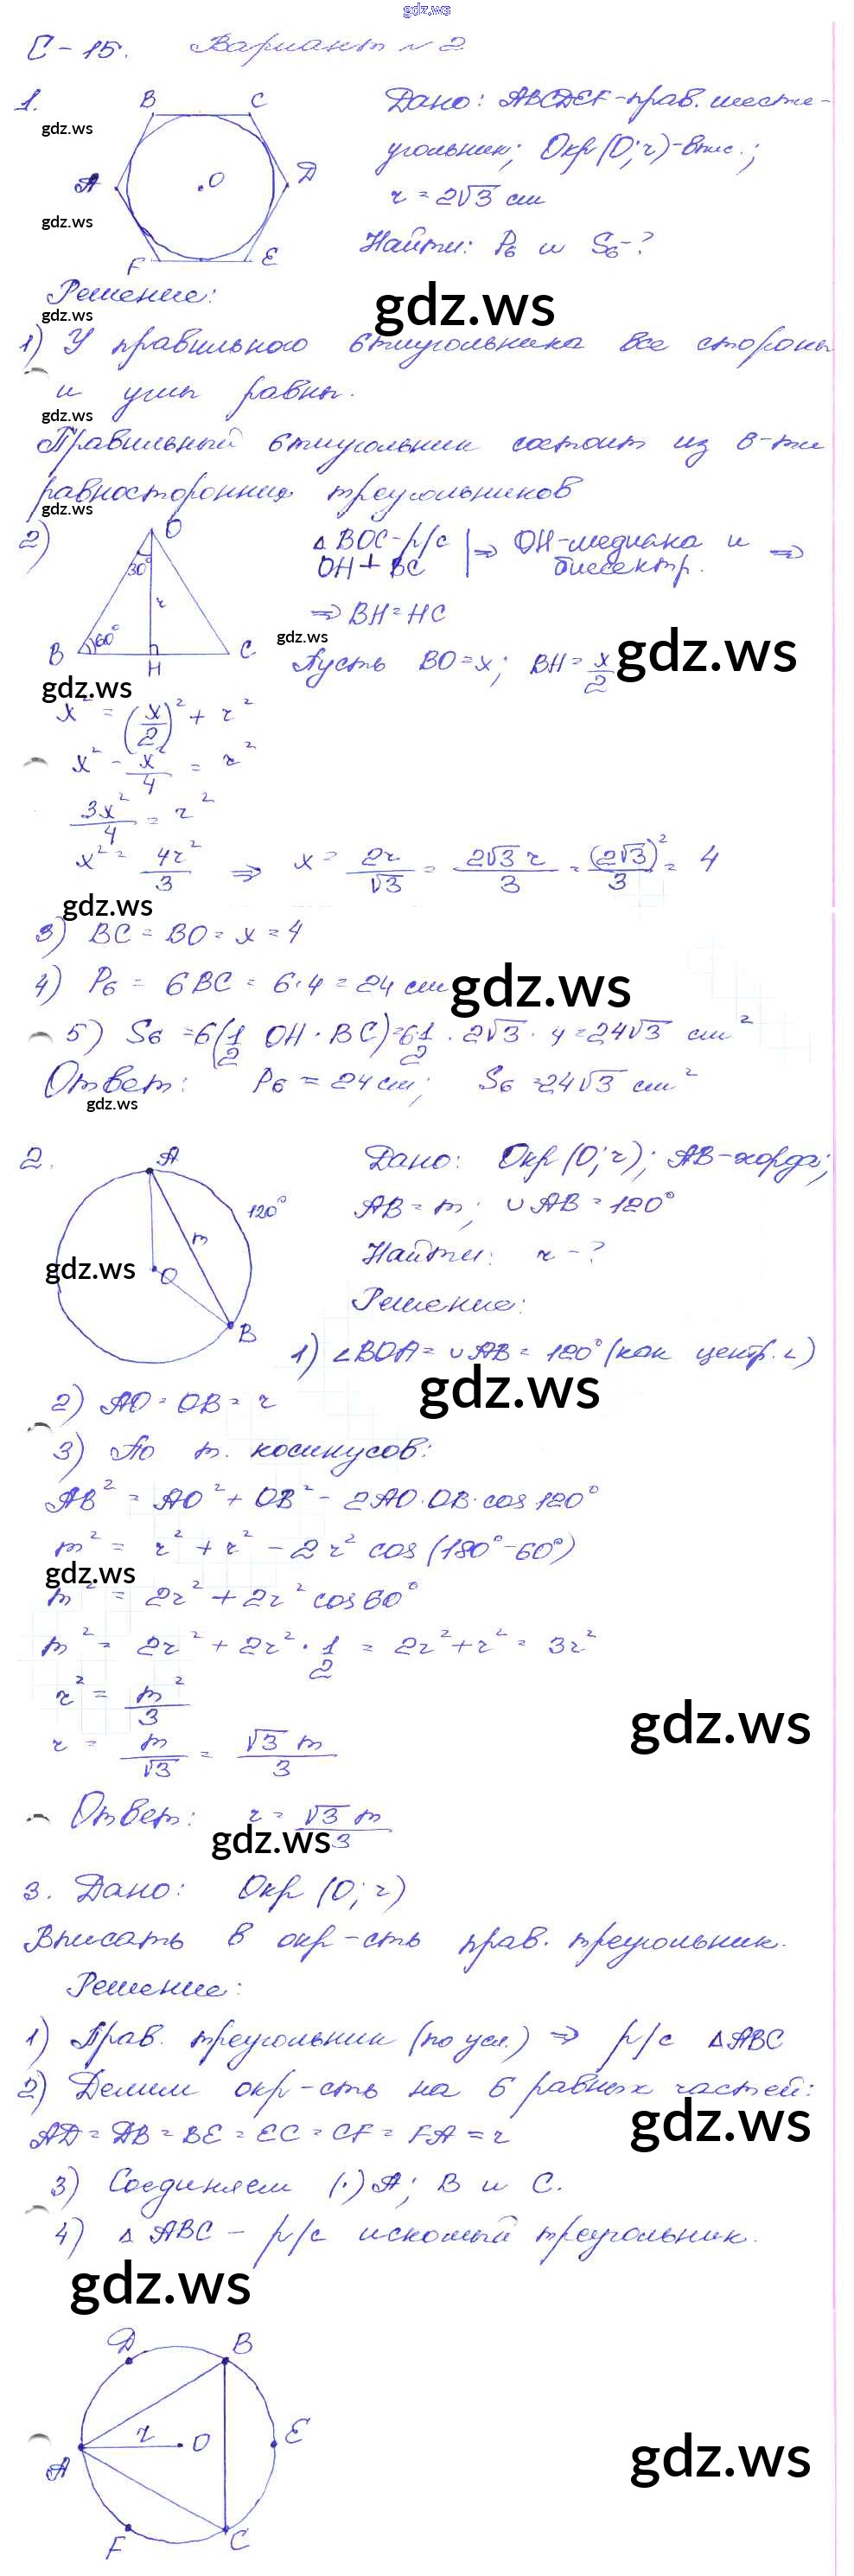 gdz.ws
С-15. Вариант №2
1.
B C
A D
O
F E
gdz.ws
gdz.ws
Дано: ABCDEF-прав. шести-
угольник; Окр(O;r)-впис.;
r = 2√3 см
Найти: P₆ и S₆-?
Решение:
gdz.ws
gdz.ws
1) У правильного 6тиугольника все стороны
и углы равны.
gdz.ws
Правильный 6тиугольник состоит из 6-ти
равносторонних треугольников
gdz.ws
2)
O
30°
r
B 60° H C
△BOC-р/с | ⇒ OH-медиана и ⇒
OH⊥BC | биссектр.
⇒ BH=HC
gdz.ws
Пусть BO=x; BH=x/2
gdz.ws
gdz.ws
x² = (x/2)² + r²
x² - x²/4 = r²
3x²/4 = r²
x² = 4r²/3 ⇒ x = 2r/√3 = 2√3 r/3 = (2√3)²/3 = 4
gdz.ws
3) BC = BO = x = 4
4) P₆ = 6BC = 6·4 = 24 см
gdz.ws
5) S₆ = 6(1/2 OH·BC)=6·1/2·2√3·4=24√3 см²
Ответ: P₆ = 24см; S₆=24√3 см²
gdz.ws
2.
A
120°
m
O
B
gdz.ws
Дано: Окр(O;r); AB-хорда;
AB = m; ∪AB = 120°
Найти: r-?
Решение:
1) ∠BOA = ∪AB = 120° (как центр.∠)
gdz.ws
2) AO = OB = r
3) По т. косинусов:
AB² = AO² + OB² - 2AO·OB·cos120°
m² = r² + r² - 2r² cos(180°-60°)
gdz.ws
m² = 2r² + 2r² cos60°
m² = 2r² + 2r²·1/2 = 2r²+r² = 3r²
r² = m²/3
gdz.ws
r = m/√3 = √3 m/3
Ответ: r = √3 m/3
gdz.ws
3. Дано: Окр(O;r)
Вписать в окр-сть прав. треугольник.
Решение:
1) Прав. треугольник (по усл.) ⇒ р/с △ABC
2) Делим окр-сть на 6 равных частей:
gdz.ws
AD = DB = BE = EC = CF = FA = r
3) Соединяем (·)A; B и C.
4) △ABC – р/с искомый треугольник.
gdz.ws
D B
r O E
A
gdz.ws
F C